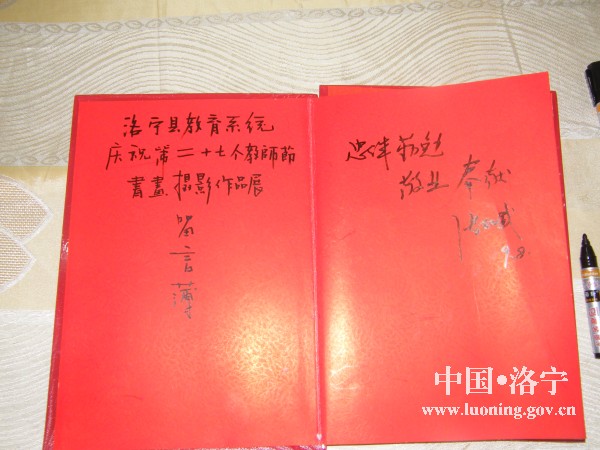 洛宁县教育系统
庆祝第二十七个教師節
書畫攝影作品展
留言薄
忠诚
敬业 奉献
9.8.
中国·洛宁
www.luoning.gov.cn